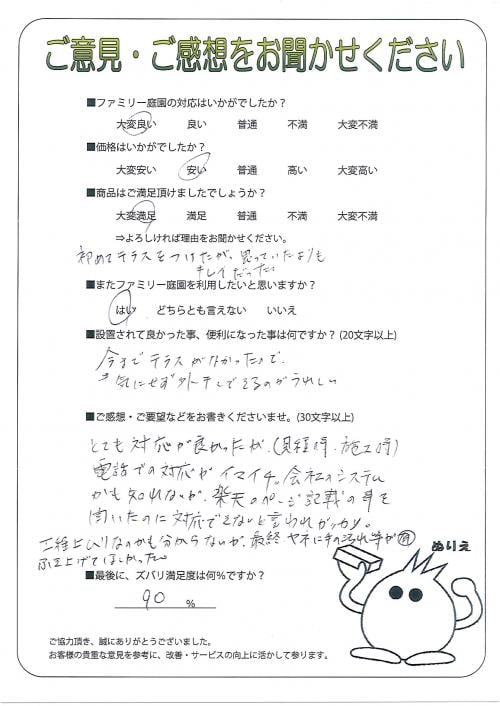 ご意見・ご感想をお聞かせください
■ファミリー庭園の対応はいかがでしたか？
大変良い 良い 普通 不満 大変不満
■価格はいかがでしたか？
大変安い 安い 普通 高い 大変高い
■商品はご満足頂けましたでしょうか？
大変満足 満足 普通 不満 大変不満
⇒よろしければ理由をお聞かせください。
初めてテラスをつけたが、思っていたよりも
キレイだった。
■またファミリー庭園を利用したいと思いますか？
はい どちらとも言えない いいえ
■設置されて良かった事、便利になった事は何ですか？(20文字以上)
今までテラスがなかったので、
気にせず外干しできるのがうれしい
■ご感想・ご要望などをお書きくださいませ。(30文字以上)
とても対応が良かったが、(見積時・施工時)
電話での対応がイマイチ。会社のシステム
かも知れないが、楽天のページ記載の事を
聞いたのに対応できないと言われガッカリ。
工程上ムリなのかも分からないが、最終ヤネに手の汚れ等が有
ふき上げてほしかった。
ぬりえ
■最後に、ズバリ満足度は何%ですか？
90 %
ご協力頂き、誠にありがとうございました。
お客様の貴重な意見を参考に、改善・サービスの向上に活かして参ります。